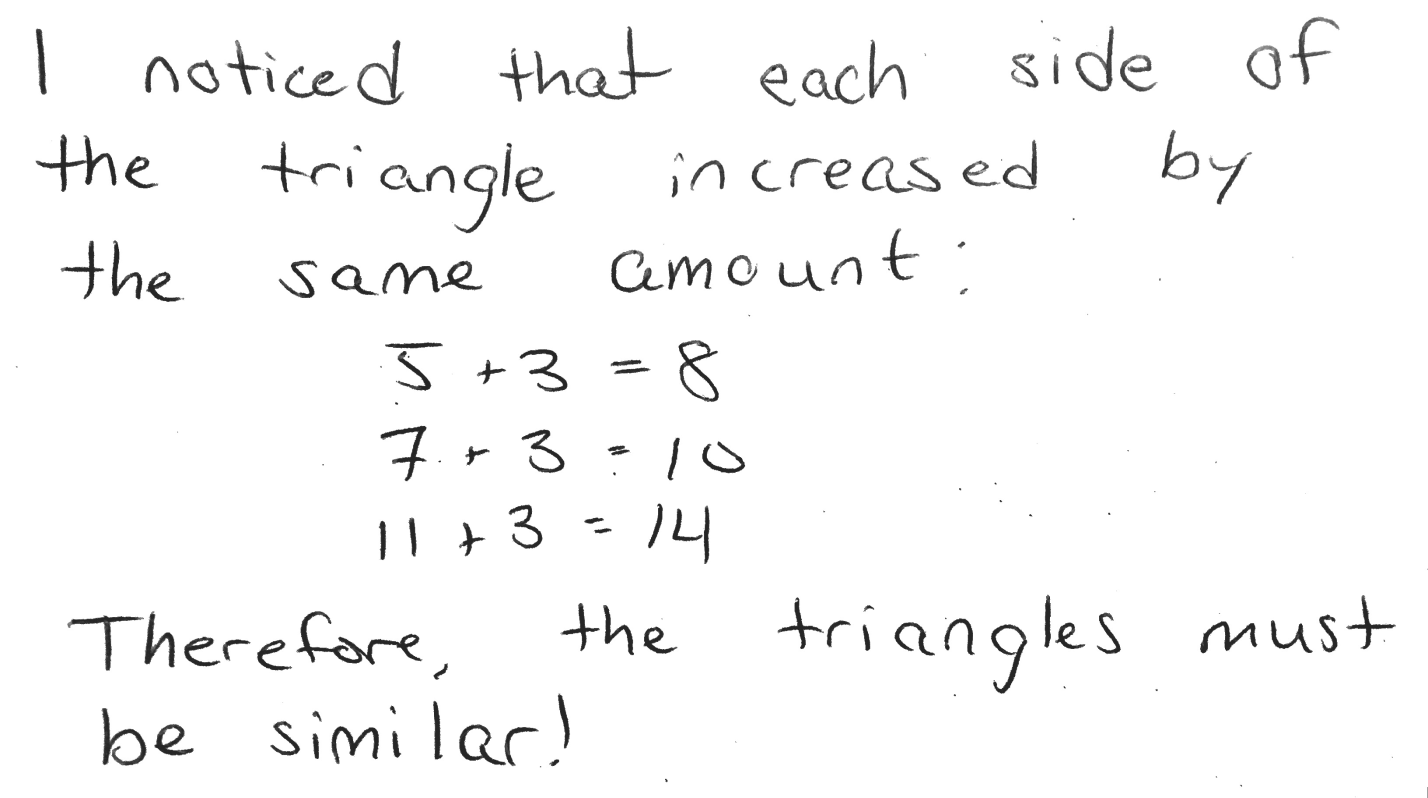 I noticed that each side of
the triangle increased by
the same amount:
5 + 3 = 8
7 + 3 = 10
11 + 3 = 14
Therefore, the triangles must
be similar!